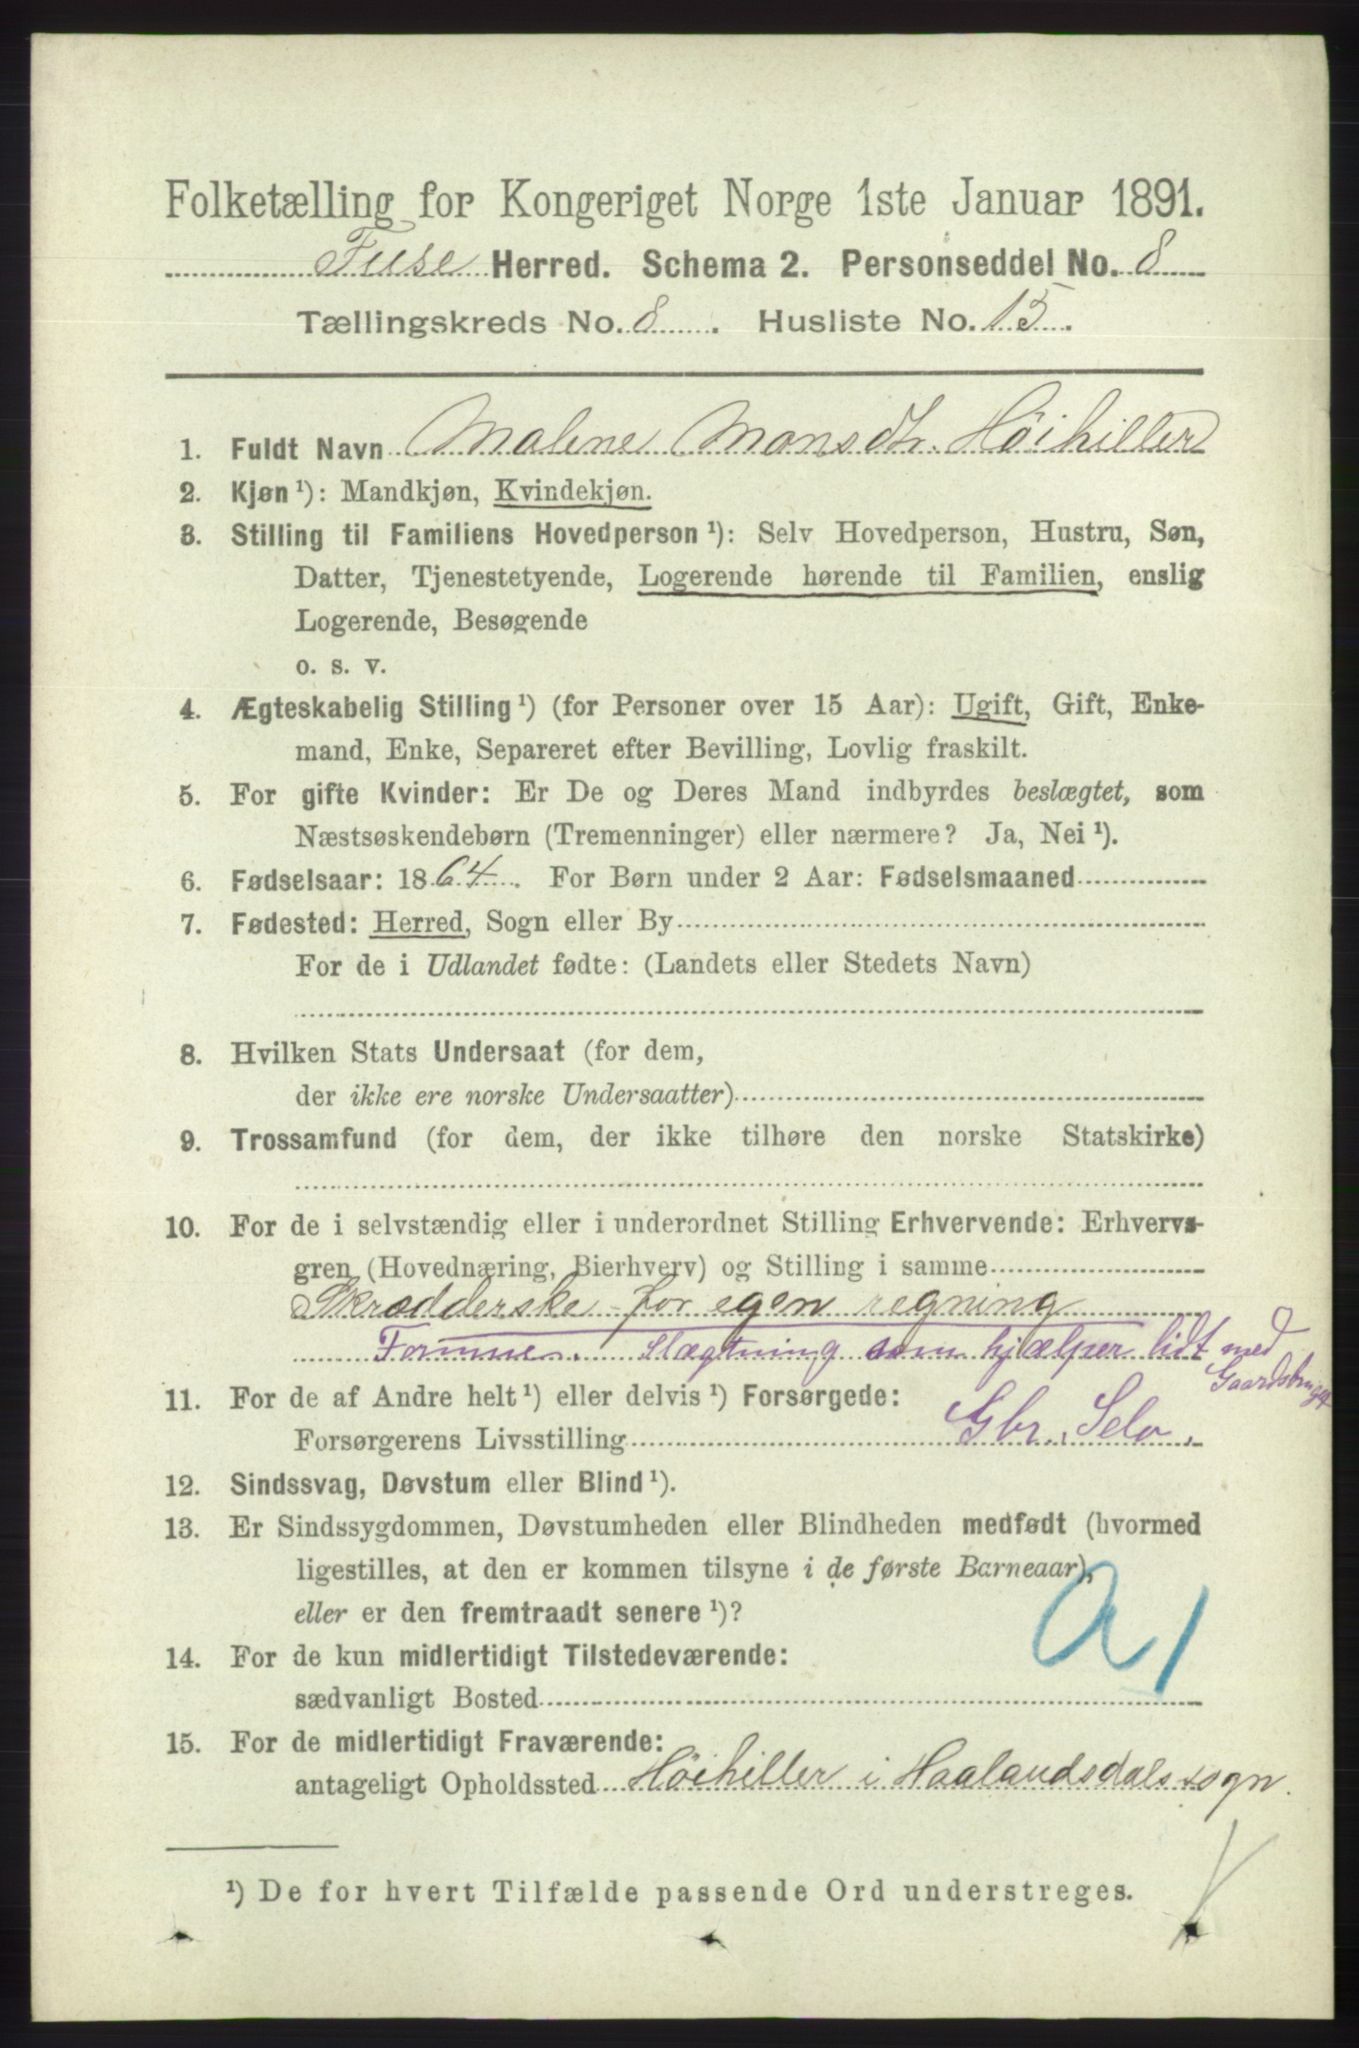 Folketælling for Kongeriget Norge 1ste Januar 1891.
Fuse Herred. Schema 2. Personseddel No. 8
Tællingskreds No. 8. Husliste No. 15.
1. Fuldt Navn Malene Monsdtr. Höihiller
2. Kjøn ¹): Mandkjøn, Kvindekjøn.
3. Stilling til Familiens Hovedperson ¹): Selv Hovedperson, Hustru, Søn,
Datter, Tjenestetyende, Logerende hørende til Familien, enslig
Logerende, Besøgende
o. s. v.
4. Ægteskabelig Stilling ¹) (for Personer over 15 Aar): Ugift, Gift, Enke-
mand, Enke, Separeret efter Bevilling, Lovlig fraskilt.
5. For gifte Kvinder: Er De og Deres Mand indbyrdes beslægtet, som
Næstsøskendebørn (Tremenninger) eller nærmere? Ja, Nei ¹).
6. Fødselsaar: 1864. For Børn under 2 Aar: Fødselsmaaned
7. Fødested: Herred, Sogn eller By
For de i Udlandet fødte: (Landets eller Stedets Navn)
8. Hvilken Stats Undersaat (for dem,
der ikke ere norske Undersaatter)
9. Trossamfund (for dem, der ikke tilhøre den norske Statskirke)
10. For de i selvstændig eller i underordnet Stilling Erhvervende: Erhvervs-
gren (Hovednæring, Bierhverv) og Stilling i samme
Skrædderske for egen regning
Slægtning som hjælper lidt med
11. For de af Andre helt ¹) eller delvis ¹) Forsørgede:
Forsørgerens Livsstilling Gbr. Selv.
12. Sindssvag, Døvstum eller Blind ¹).
13. Er Sindssygdommen, Døvstumheden eller Blindheden medfødt (hvormed
ligestilles, at den er kommen tilsyne i de første Barneaar),
eller er den fremtraadt senere ¹)?
14. For de kun midlertidigt Tilstedeværende:
sædvanligt Bosted
15. For de midlertidigt Fraværende:
antageligt Opholdssted Höihiller i Haalandsdals sogn.
¹) De for hvert Tilfælde passende Ord understreges.